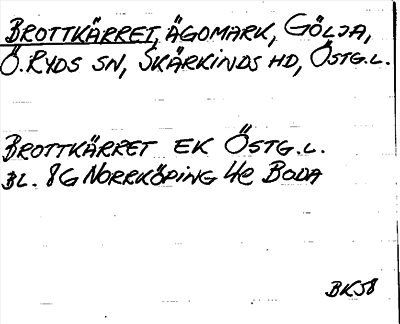 BROTTKÄRRET, ÄGOMARK, GÖLJA,
Ö. RYDS SN, SKÄRKINDS HD, ÖSTG.L.
BROTTKÄRRET EK ÖSTG.L.
BL. 8G NORRKÖPING 4e BODA
BK58